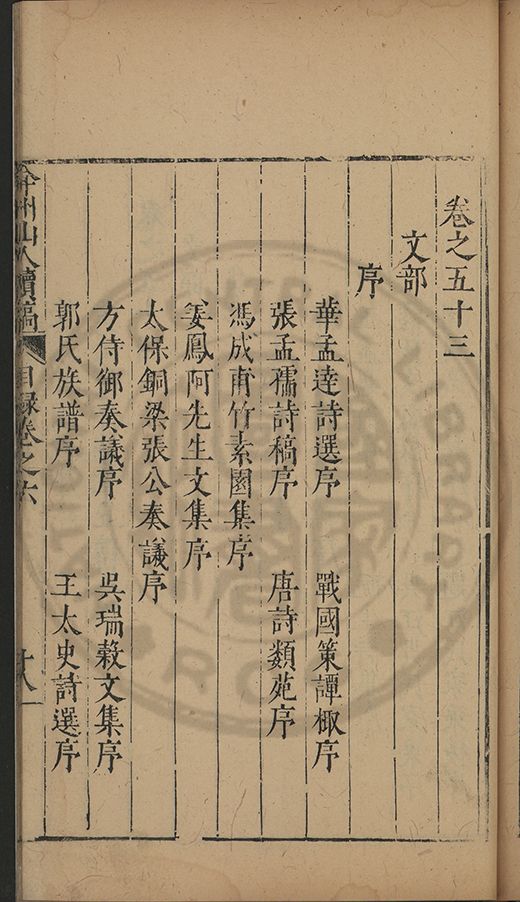 卷之五十三
文部
序
華孟達詩選序 戰國策譚棷序
張孟孺詩稿序 唐詩類苑序
馮成甫竹素園集序
姜鳳阿先生文集序
太保銅梁張公奏議序
方侍御奏議序 吳瑞穀文集序
郭氏族譜序 王太史詩選序
弇州山人續稿 目録卷之六